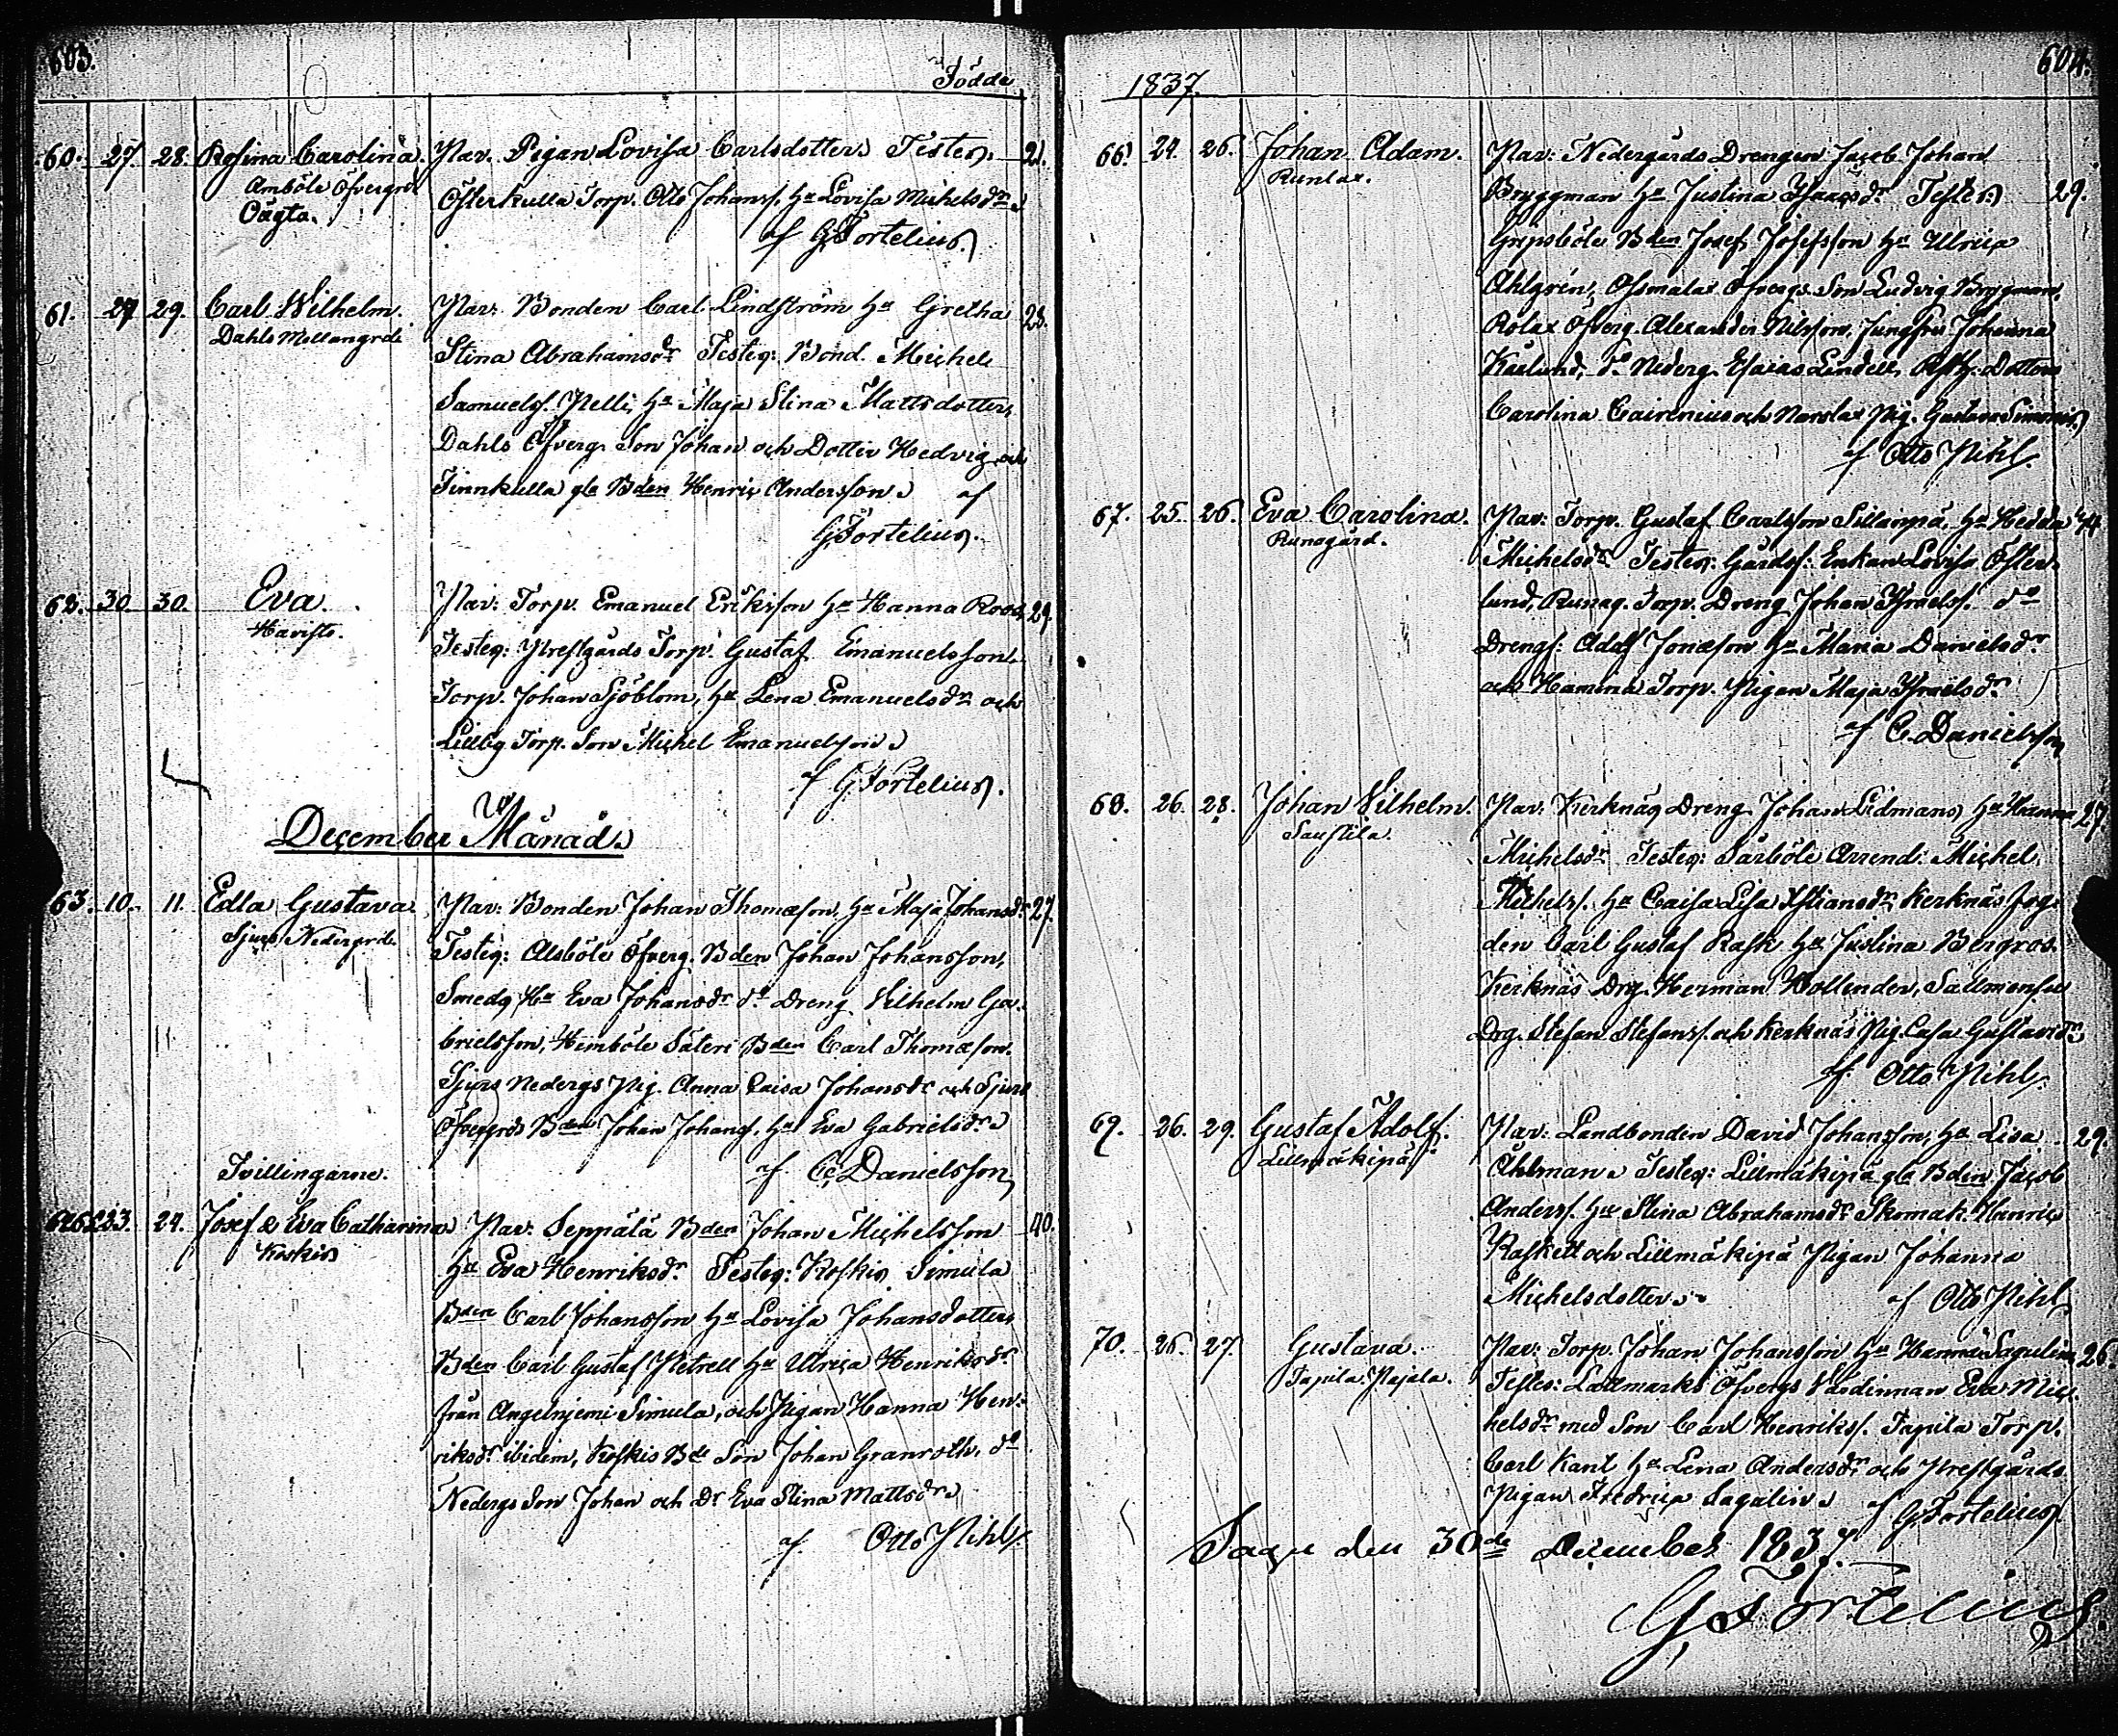 603.
Födde
60. 27. 28. Rosina Carolina. Par. Pigan Lovisa Carlsdotter. Testes. 21.
Amböle Öfvergrd Österkulla Torp. Otto Johanss. Hu Lovisa Michelsdr
Oägta. af G. Fortelius.
61. 27 29. Carl Wilhelm. Par: Bonden Carl Lindström Hu Gretha 28.
Dahls Mellangrd: Stina Abrahamsdr Testes: Bond. Michel
Samuelss. Pelli, Hu Maja Stina Mattsdotter,
Dahls Öfverg. Son Johan och Dotter Hedvig, och
Finnkulla gla Bden Henric Andersson af
G. Fortelius.
62. 30. 30. Eva. Par: Torp. Emanuel Eriksson Hu Hanna Roos, 29.
Haristo. Testes: Prestgårds Torp. Gustaf Emanuelsson,
Torp. Johan Sjöblom, Hu Lena Emanuelsdr och
Torp. Son Michel Emanuelsson
af G. Fortelius.
December Månad.
63. 10. 11. Edla Gustava. Par: Bonden Johan Thomasson, Hu Maja Johansdr 27.
Sjurs Nedergrd. Testes: Alsböle Öfverg. Bden Johan Johansson,
Smeds Hu Eva Johansdr do Dreng Vilhelm Ga-
brielsson, Himböle Säteri Bden Carl Thomasson.
Sjurs Nedergs Pig. Anna Caisa Johansdr och Sjurs
Öfvergrds Bden Johan Johanss. Hu Eva Gabrielsdr
Tvillingarne. af C. Danielsson
23. 24. Josef & Eva Catharina Par: Seppälä Bden Johan Michelsson 40.
Koskis Hu Eva Henriksdr. Testes: Koskis Simula
Bden Carl Johansson Hu Lovisa Johansdotter,
Bden Carl Gustaf Petrell Hu Ulrica Henriksdr
från Angelniemi Simula, och Pigan Hanna Hen-
riksdr ibidem, Koskis Bde Son Johan Granroth, do
Nedergs Son Johan och Dr Eva Stina Mattsdr
af Otto Pihl.
1837.
604.
66. 24. 26. Johan Adam. Par: Nedergårds Drengen Jacob Johan
Runlax. Bryggman Hu Justina Isaacsdr Testes: 29.
Gripsböle Bden Josef Josefsson Hu Ulrica
Ahlgren, Öfvergs. Son Ludvig Bryggman,
Rolax Öfverg. Alexander Nilsson, Jungfru Johanna
do Nederg. Esaias Lindell, Dotter
Carolina och Norrlax Pig. Gustava
af Otto Pihl.
67. 25. 26. Eva Carolina. Par: Torp. Gustaf Carlsson Sillanpä, Hu Hedda 44
Runagård. Michelsdr Testes: Gårdss: Enkan Lovisa Öster-
lund, Runag. Torp. Dreng Johan Israelss. do
Drengs: Adolf Jonasson Hu Maria Danielsdr
och Hamina Torp. Pigan Maja Israelsdr
af C. Danielsson
68. 26. 28. Johan Vilhelm. Par. Kerknäs Dreng Johan Lidman, Hu Hanna 27.
Saustila. Michelsdr Testes: Särböle Arrend: Michel
Michelss. Hu Caisa Lisa Kerknäs Fog-
den Carl Gustaf Rask Hu Justina Bergros.
Kerknäs Drg. Herman Hollender,
Drg. Stefan Stefanss. och Kerknäs Pig. Casa Gustavsdr
af Otto Pihl.
69. 26. 29. Gustaf Adolf. Par: Landbonden David Johansson, Hu Lisa 29.
Lillmäkipä. Ahlman Testes: Lillmäkipä gla Bden Jacob
Anderss. Hu Stina Abrahamsdr Skomak. Henric
Raskell och Lillmäkipä Pigan Johanna
Michelsdotter af Otto Pihl
70. 26. 27. Gustava. Par: Torp. Johan Johansson Hu Hanna Sagulin 26.
Tapila Pajala. Testes: Lallmarks Öfvergs Värdinnan Eva Mic-
helsdr med Son Carl Henrikss. Tapila Torp.
Carl Kant Hu Lena Andersdr och Prestgårds
Pigan Fredrica Sagulin af G. Fortelius
Sagu den 30de December 1837.
G. Fortelius.